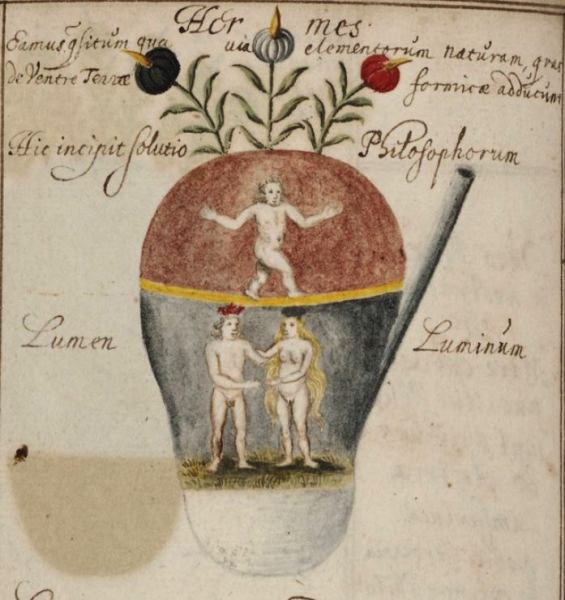 Hermes.
Eamus qsitum qua via elementorum naturam, quas
de Ventre Terræ formicæ adducunt
Hic incipit solutio Philosophorum
Lumen Luminum